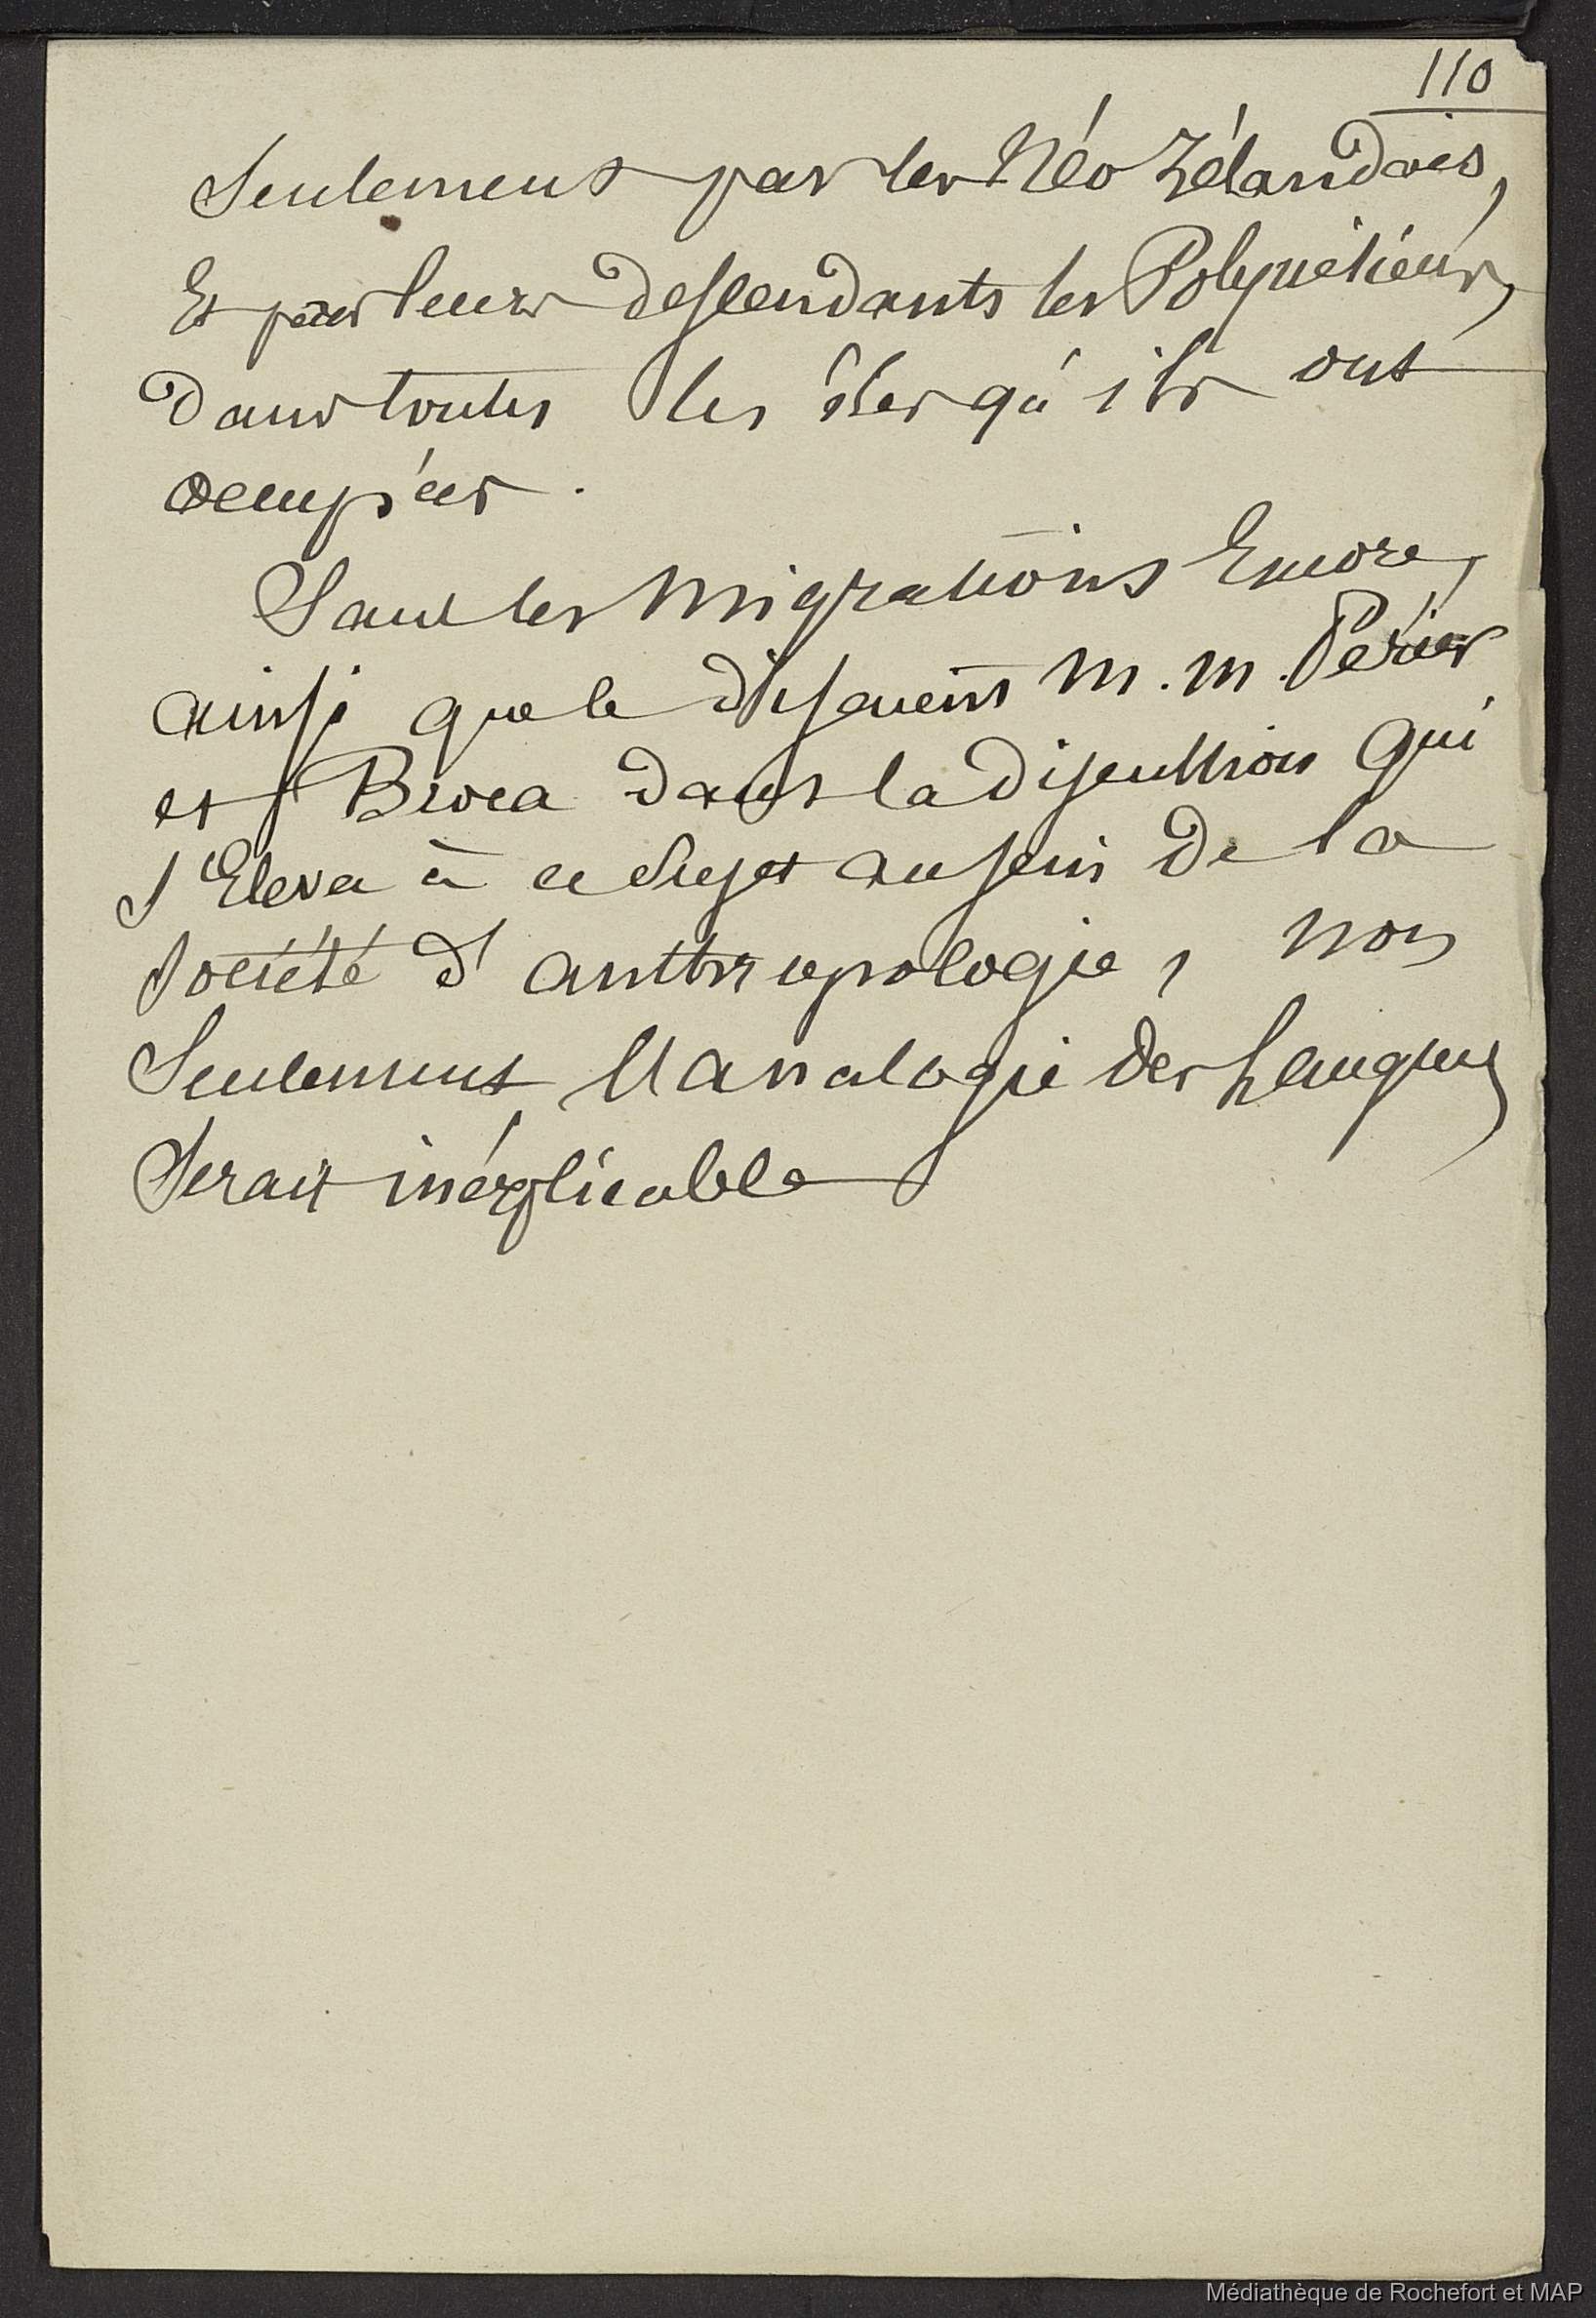 110
Seulement par les Néo Zélandais,
Et par leurs descendants les Polynésiens,
Dans toutes les îles qu'ils ont
occupées.
Sans les Migrations Encore,
ainsi que le disaient M. M. Périer
et Broca dans la discussion qui
s'Eleva à ce Sujet au sein de la
Société d'anthropologie, non
Seulement l'analogie des Langues
Serait inéxplicable
Médiathèque de Rochefort et MAP